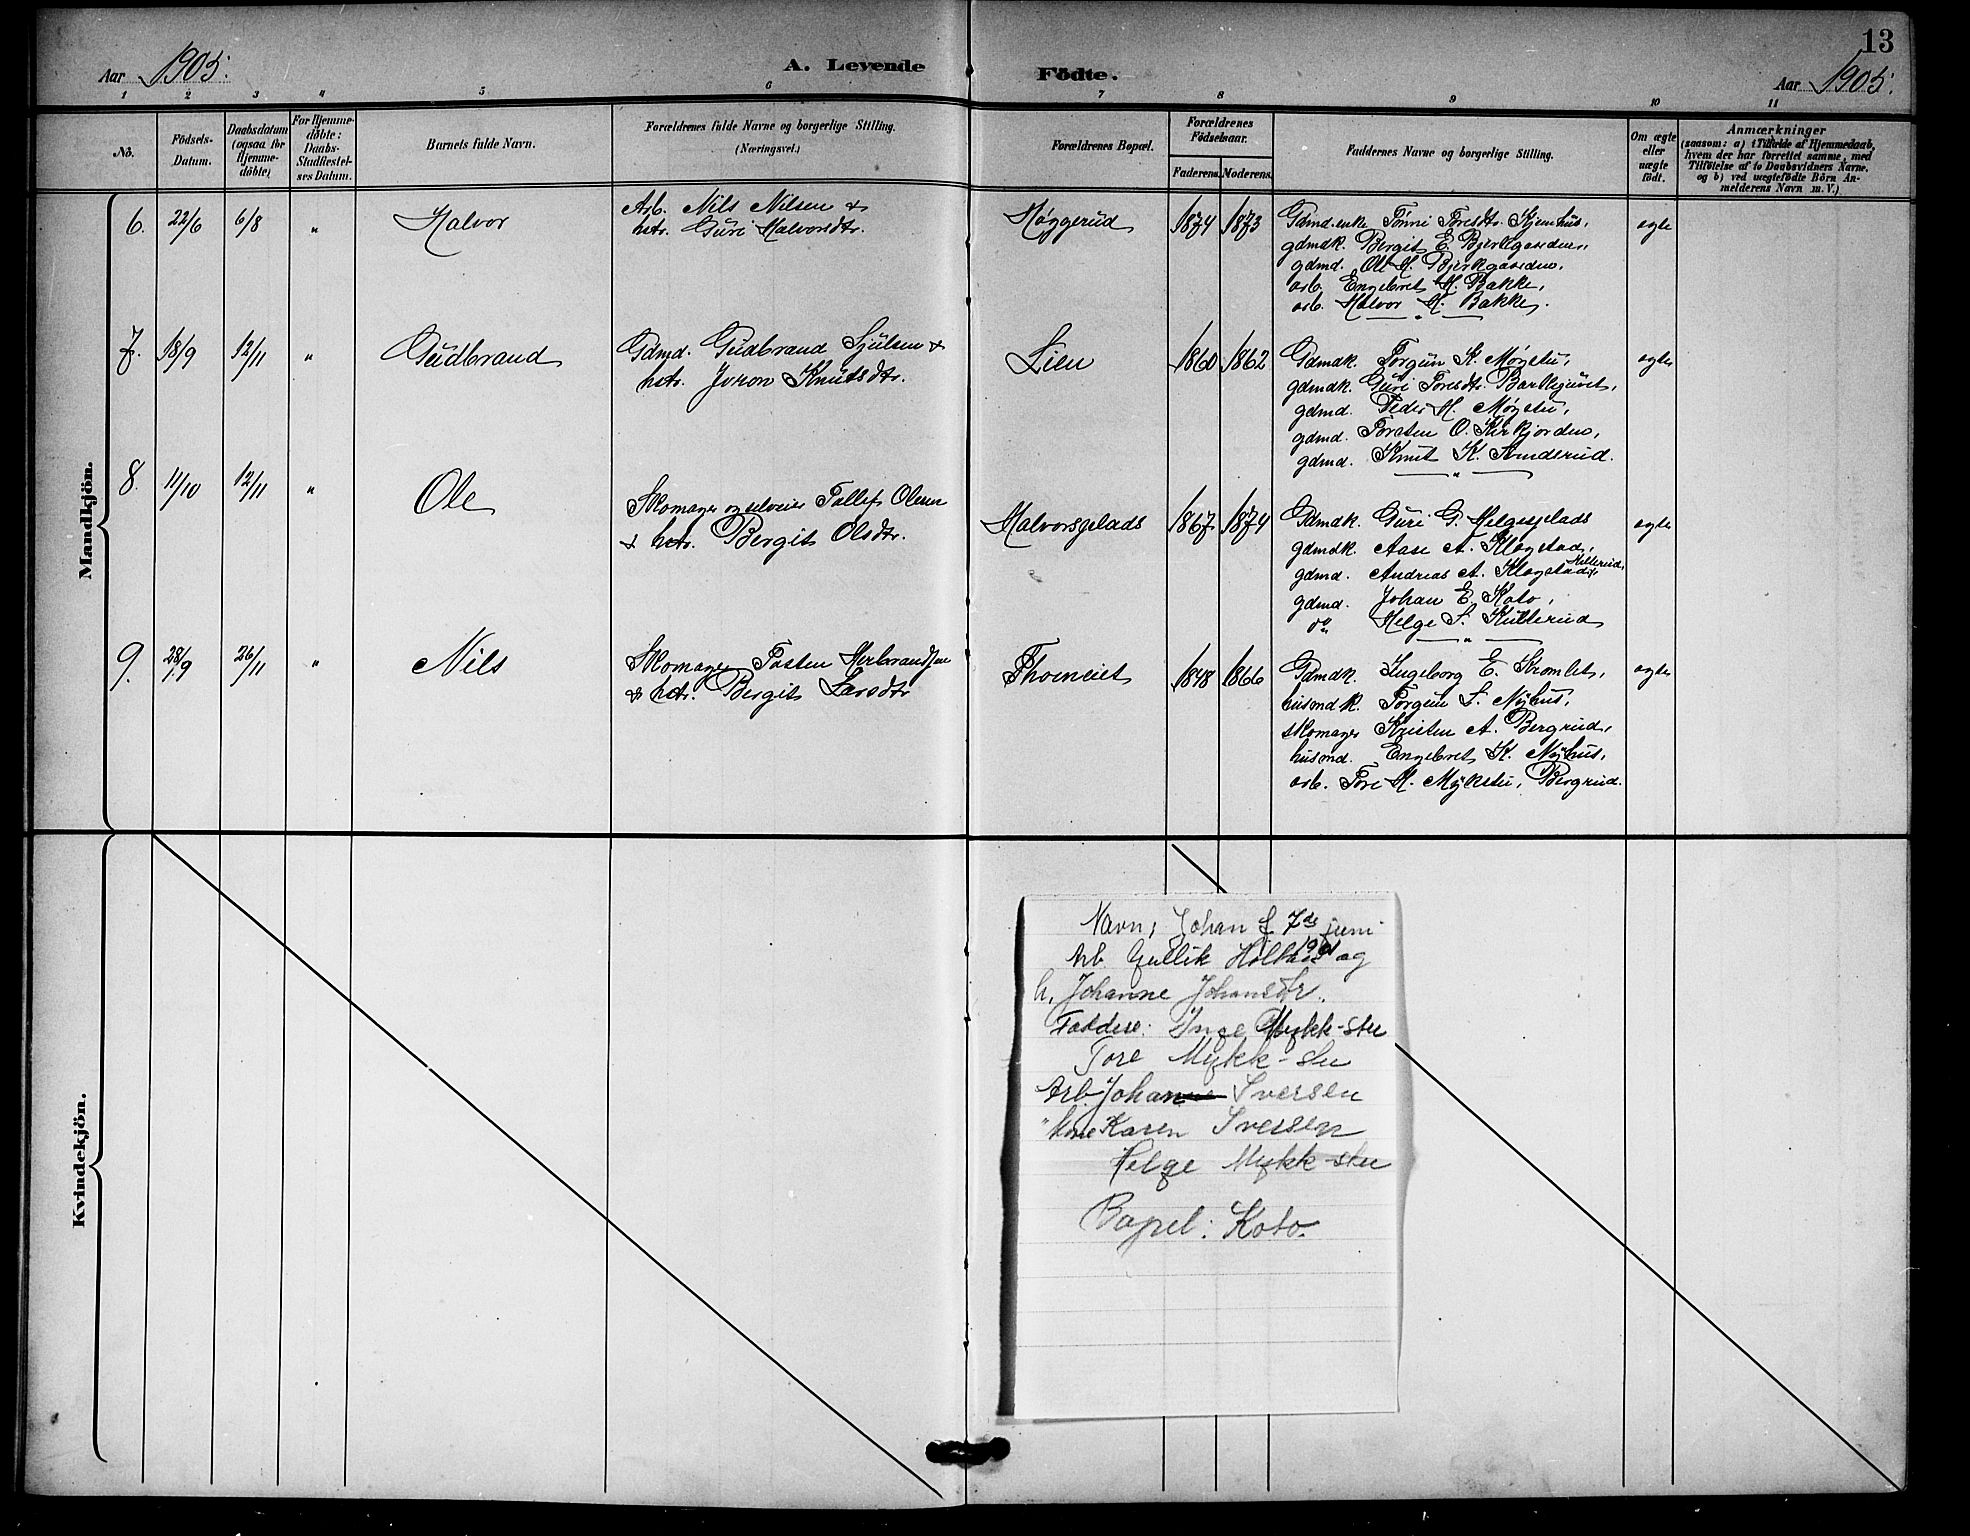 13
Aar 1905.
A. Levende Födte.
Aar 1905.
1 2 3 4 5 6 7 8 9 10 11
No.
Födsels-Datum.
Daabsdatum (ogsaa for Hjemme-döbte)
For Hjemme-döbte: Daabs-Stadfæstel-ses Datum.
Barnets fulde Navn.
Forældrenes fulde Navne og borgerlige Stilling.
(Næringsvei.)
Forældrenes Bopæl.
Forældrenes Födselsaar.
Faderens. Moderens.
Faddernes Navne og borgerlige Stilling.
Om ægte eller uægte födt.
Anmærkninger
(saasom: a) i Tilfælde af Hjemmedaab,
hvem der har forrettet samme, med
Tilföielse af to Daabsvidners Navne,
og b) ved uægtefödte Börn An-
melderens Navn m. V.)
Mandkjön.
6. 22/6 6/8 " Halvor
Arb. Nils Nilsen &
hstr. Guri Halvorsdtr.
Høggerud 1874 1873
Gdmd.enke Tønni Toresdtr. Hjemhus,
gdmdk. Bergit E. Bjerkgaarden,
gdmd. Ole H. Bjerkgaarden,
arb. Engebret H. Bakke,
arb. Halvor H. Bakke.
ægte
7. 18/9 12/11 " Gudbrand
Gdmd. Gudbrand Sjulsen &
hstr. Joron Knutsdtr.
Lien 1860 1862
Gdmdk. Torgun K. Møgstu,
gdmdk. Guri Toresdtr. Barlkgjuret,
gdmd. Peder H. Møgstu,
gdmd. Torsten O. Kirkjorden,
gdmd. Knut K. Tunderud.
ægte
8. 11/10 12/11 " Ole
Skomager og selveier Tollef Olsen
& hstr. Bergit Olsdtr.
Halvorsgelads 1867 1874
Gdmdk. Guri G. Helgesgelads
gdmdk. Aase A. Klogstad,
gdmd. Andreas A. Klogstad,
gdmd. Johan E. Koto,
do Helge S. Kulterud
ægte
9. 28/9 26/11 " Nils
Skomager Tosten Herbrandsen
& hstr. Bergit Larsdtr
Thorneiet 1848 1866
Gdmdk. Ingeborg E. Tromlet,
husmdk. Torgun S. Nyhus,
skomager Kristen A. Bergrud,
husmd. Engebret K. Nyhus,
arb. Tore H. Mykstu, Bergrud.
ægte
Kvindekjön.
Navn; Johan f 7de juni
1901
Arb. Gullik Holthe og
h. Johanne Johansdtr.
Faddere: Inge Mykk-stu
Tore Mykk-stu
Arb. Johan Iversen
" kone Karen Iversen
Helge Mykk-stu
Bopel: Koto.